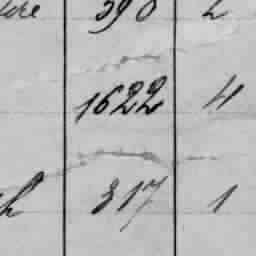 390 2
1622 4
h 317 1